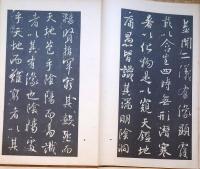 蓋聞二儀有像顯覆
載以含生四時無形潛寒
暑以化物是以窺天鑑地
庸愚皆識其端明陰洞
陽賢哲罕窮其數然而
天地苞乎陰陽而易識
者以其有像也陰陽處
乎天地而難窮者以其